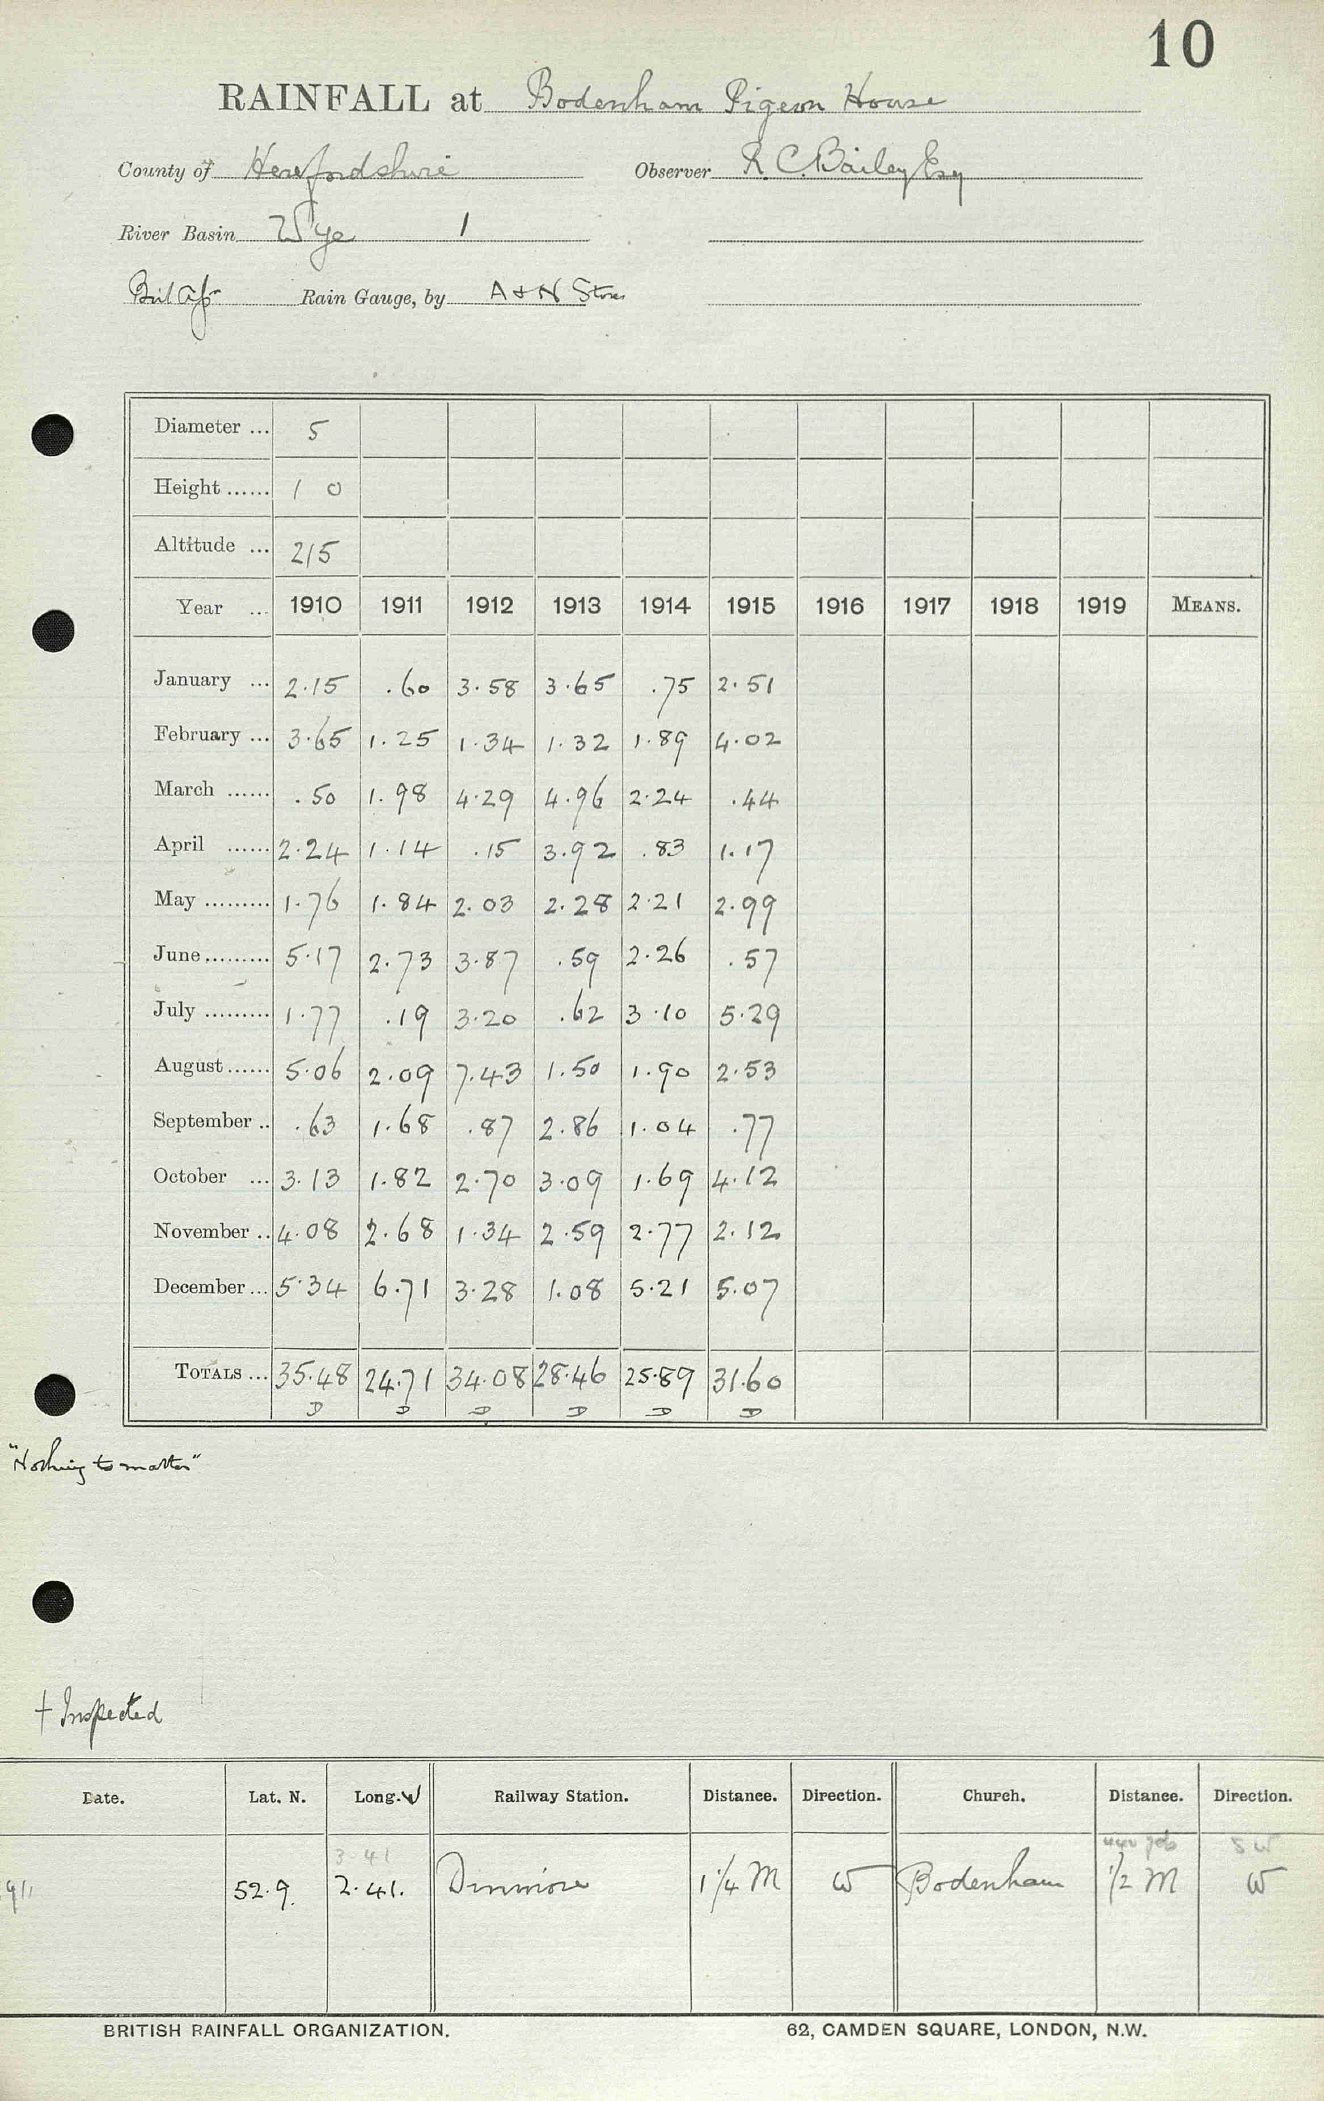 10
RAINFALL at Bodenham Pigeon House
County of Herefordshire Observer R. C. Bailey Esq
River Basin Wye 1
Rain Gauge, by A & N Stores
Diameter ... 5
Height ...... 1 0
Altitude ... 215
Year ... 1910 1911 1912 1913 1914 1915 1916 1917 1918 1919 MEANS.
January ... 2.15 .60 3.58 3.65 .75 2.51
February ... 3.65 1.25 1.34 1.32 1.89 4.02
March ...... .50 1.98 4.29 4.96 2.24 .44
April ...... 2.24 1.14 .15 3.92 .83 1.17
May ......... 1.76 1.84 2.03 2.28 2.21 2.99
June ......... 5.17 2.73 3.87 .59 2.26 .57
July ......... 1.77 .19 3.20 .62 3.10 5.29
August ...... 5.06 2.09 7.43 1.50 1.90 2.53
September .. .63 1.68 .87 2.86 1.04 .77
October ... 3.13 1.82 2.70 3.09 1.69 4.12
November .. 4.08 2.68 1.34 2.59 2.77 2.12
December ... 5.34 6.71 3.28 1.08 5.21 5.07
TOTALS ... 35.48 24.71 34.08 28.46 25.89 31.60
D D D D D D
"Nothing to matter"
† Inspected
Date. Lat. N. Long. W Railway Station. Distance. Direction. Church. Distance. Direction.
3.41 440 yds SW
911 52.9. 2.41. Dinmore 1 1/4 M W Bodenham 1/2 M W
BRITISH RAINFALL ORGANIZATION. 62, CAMDEN SQUARE, LONDON, N.W.